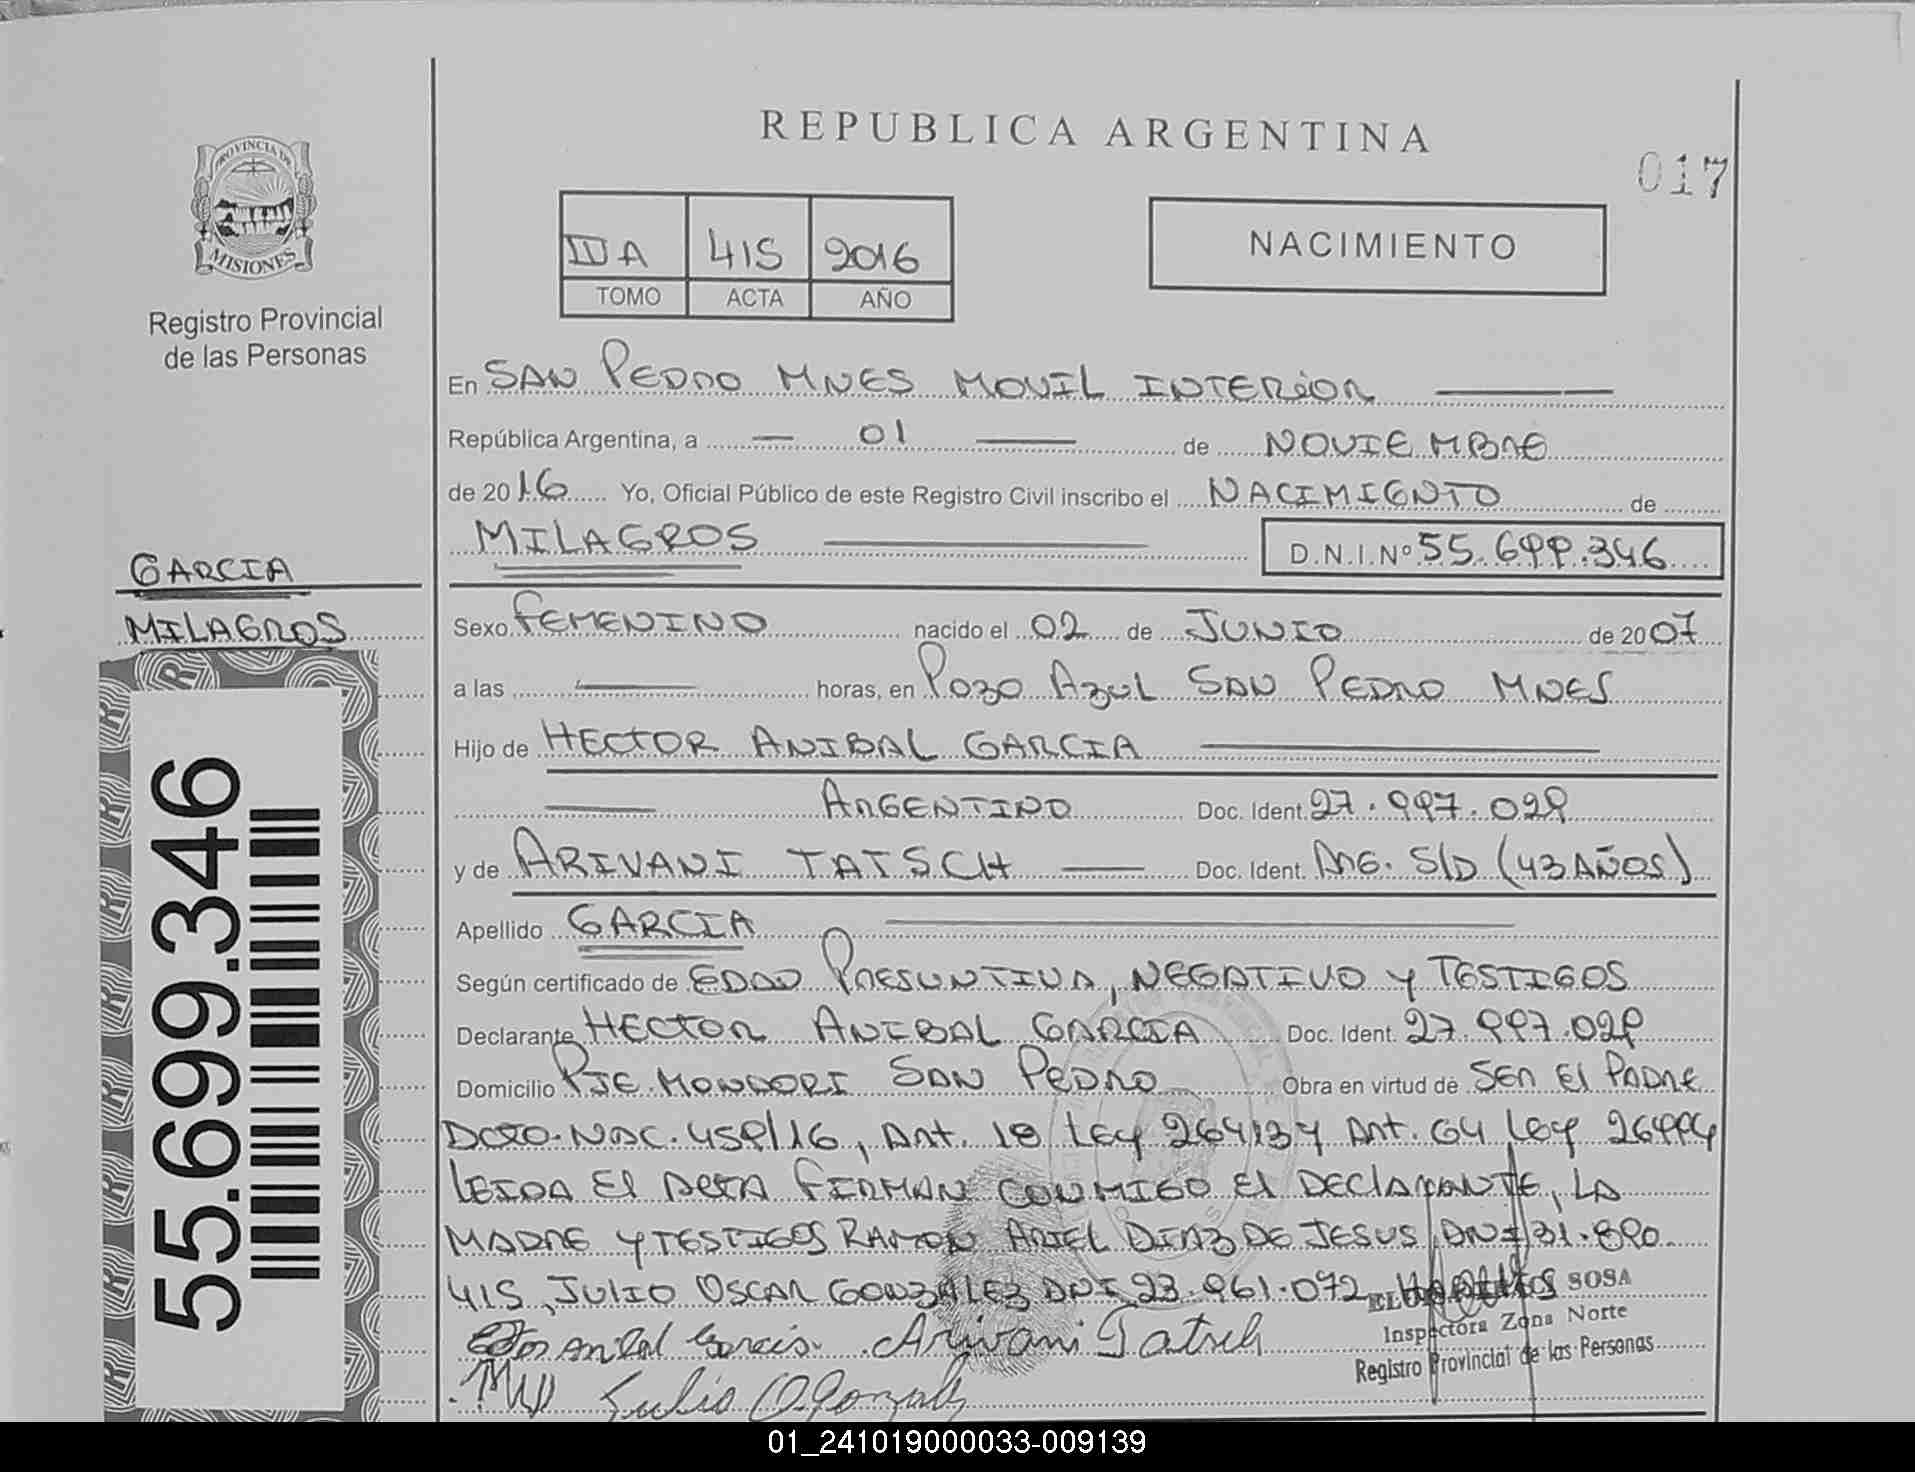 REPUBLICA ARGENTINA
017
PROVINCIA DE
MISIONES
Registro Provincial
de las Personas
IIA 415 2016
TOMO ACTA AÑO
NACIMIENTO
En SAN PEDRO MNES MOVIL INTERIOR
República Argentina, a 01 de NOVIEMBRE
de 2016 Yo, Oficial Público de este Registro Civil inscribo el NACIMIENTO de
MILAGROS D.N.I.Nº 55.699.346
GARCIA
MILAGROS
Sexo FEMENINO nacido el 02 de JUNIO de 2007
a las horas, en POZO AZUL SAN PEDRO MNES
Hijo de HECTOR ANIBAL GARCIA
ARGENTINO Doc. Ident. 27.997.029
y de ARIVANI TATSCH Doc. Ident. ARG. S/D (43 AÑOS)
Apellido GARCIA
Según certificado de EDAD PRESUNTIVA, NEGATIVO Y TESTIGOS
Declarante HECTOR ANIBAL GARCIA Doc. Ident. 27.997.029
Domicilio PJE. MONDORI SAN PEDRO Obra en virtud de SER El PADRE
DCTO. NAC. 459/16, Art. 18 Ley 26413 y Art. 64 Ley 26994
LEIDA El ACTA FIRMAN CONMIGO El DEClARANTE, LA
MADRE Y TESTIGOS RAMON ARIEL DIAZ DE JESUS DNI 31.890
415, JULIO OSCAR GONZALEZ DNI 23.961.072
SOSA
Inspectora Zona Norte
Registro Provincial de las Personas
Anibal Garcia Arivani Tatsch
Julio O Gonzalez
55.699.346
01_241019000033-009139